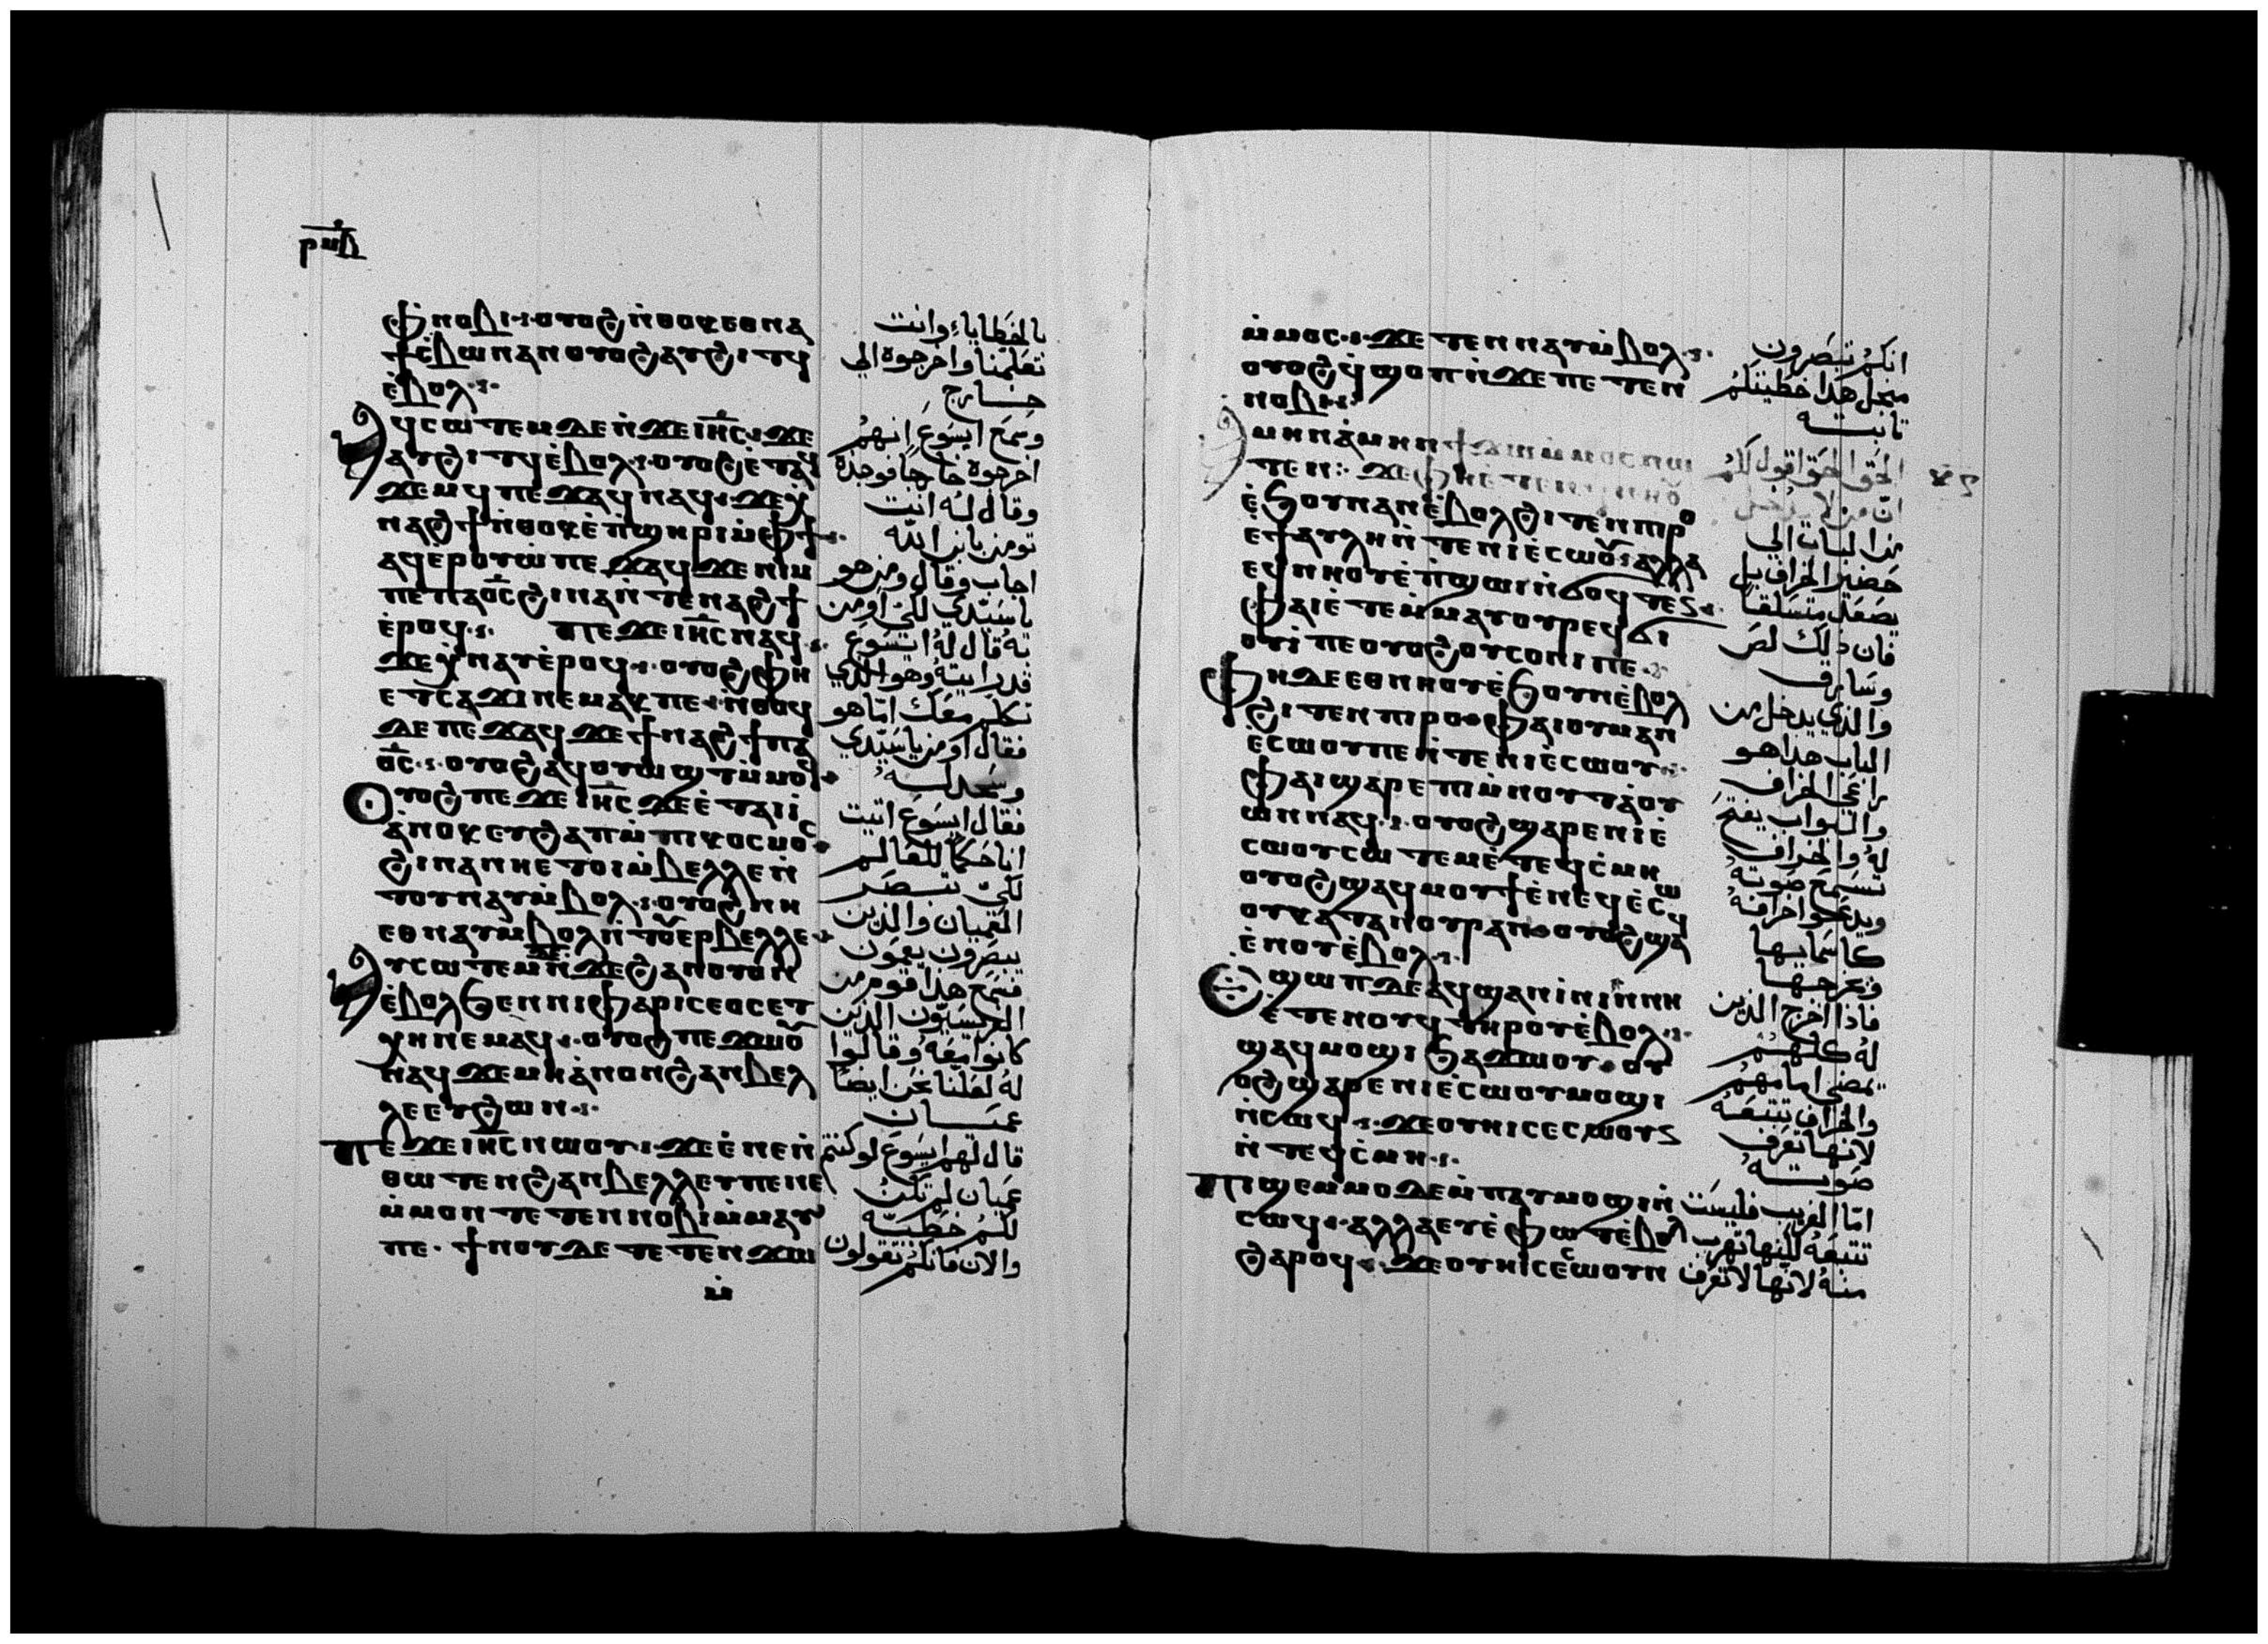 ⲣⲙⲃ
ϧⲛⲟⲃⲓ ⲟⲩⲟϩ ⲛ̀ⲑⲟⲕ ⲉⲑⲛⲁ
ϯⲥ̀ⲃⲱ ⲛⲁⲛ ⲟⲩⲟϩ ⲁⲩϩⲓⲧϥ
ⲉ̀ⲃⲟⲗ
ⲁϥⲥⲱⲧⲉⲙ ⲇⲉ ⲛ̀ϫⲉ ⲓⲏ̅ⲥ̅ ϫⲉ
ⲁⲩϩⲓⲧϥ ⲉ̀ⲃⲟⲗ ⲟⲩⲟϩ ⲉ̀ⲧⲁϥ
ϫⲉⲙϥ ⲡⲉϫⲁϥ ⲛⲁϥ ϫⲉ ⲭ̀
ⲛⲁϩϯ ⲛ̀ⲑⲟⲕ ⲉ̀ⲡ̀ϣⲏⲣⲓ ⲙ̀ⲫϯ
ⲁϥⲉ̀ⲣⲟⲩⲱ̀ ⲡⲉϫⲁϥ ϫⲉ ⲛⲓⲙ
ⲡⲉ ⲡⲁⲟ̅ⲥ̅ ϩⲓⲛⲁ ⲛ̀ⲧⲉⲛⲁϩϯ
ⲉ̀ⲣⲟϥ ⲡⲉϫⲉ ⲓⲏ̅ⲥ̅ ⲛⲁϥ
ϫⲉ ⲭ̀ⲛⲁⲩ ⲉ̀ⲣⲟϥ ⲟⲩⲟϩ ⲫⲏ
ⲉⲧⲥⲁϫⲓ ⲛⲉⲙⲁⲕ ⲡⲉ ⲛ̀ⲑⲟϥ
ⲇⲉ ⲡⲉϫⲁϥ ϫⲉ ϯⲛⲁϩϯ ⲡⲁ
ⲟ̅ⲥ̅ ⲟⲩⲟϩ ⲁϥⲟⲩⲱϣⲧ ⲙ̀ⲙⲟϥ
ⲟⲩⲟϩ ⲡⲉϫⲉ ⲓⲏ̅ⲥ̅ ϫⲉ ⲉ̀ⲧⲁⲓⲓ̀
ⲁ̀ⲛⲟⲕ ⲉⲩϩⲁⲡ ⲙ̀ⲡⲓⲕⲟⲥⲙⲟⲥ
ϩⲓⲛⲁ ⲛⲏⲉⲧⲟⲓ ⲙ̀ⲃⲉⲗⲗⲉ ⲛ̀
ⲧⲟⲩⲛⲁⲩ ⲙ̀ⲃⲟⲗ ⲟⲩⲟϩ ⲛⲏ
ⲉⲑⲛⲁⲩ ⲙ̀ⲃⲟⲗ ⲛ̀ⲧⲟⲩⲉⲣⲃⲉⲗⲗⲉ
ⲁⲩⲥⲱⲧⲉⲙ ⲇⲉ ⲛ̀ϫⲉ ϩⲁⲛⲟⲩⲟⲛ
ⲉ̀ⲃⲟⲗ ϧⲉⲛ ⲛⲓⲫⲁⲣⲓⲥⲉⲟⲥ ⲉⲧ
ⲭⲏ ⲛⲉⲙⲁϥ ⲟⲩⲟϩ ⲡⲉϫⲱⲟⲩ
ⲛⲁϥ ϫⲉ ⲙⲏ ⲁ̀ⲛⲟⲛ ϩⲁⲛⲃⲉⲗ
ⲗⲉⲉⲩ ϩⲱⲛ
ⲡⲉϫⲉ ⲓⲏ̅ⲥ̅ ⲛⲱⲟⲩ ϫⲉ ⲉ̀ⲛⲉ ⲛ̀
ⲑⲱⲧⲉⲛ ϩⲁⲛⲃⲉⲗⲗⲉⲩ ⲡⲉ ⲛⲉ
ⲙ̀ⲙⲟⲛ ⲧⲉⲧⲉⲛ ⲛⲟⲃⲓ ⲙ̀ⲙⲁⲩ
ⲡⲉ ϯⲛⲟⲩ ⲇⲉ ⲧⲉⲧⲉⲛϫⲱ
ⲙ̀
بالخطايا وانت
تعلمنا واخرجوه الي
خارج
وسمع ايسوع انهم
اخرجوه خارجا فوجده
وقال له انت
تومن بابن الله
اجاب وقال ومن هو
يا سيدي لكي اومن
به قال له ايسوع
قد رايته وهو الذي
تكلم معك اما هو
فقال اومن يا سيدي
وسجد له
فقال ايسوع اتيت
انا حكما للعالم
لكي تبصر
العميان والذين
يبصرون يعمون
فسمع هذا قوم من
الفريسيون الذين
كانوا معه وقالوا
له لعلنا نحن ايضا
عميان
قال لهم ايسوع لو كنتم
عميان لم تكن
لكم خطية
والان فانكم تقولون
ⲙ̀ⲙⲟⲥ ϫⲉ ⲧⲉⲛⲛⲁⲩ ⲙ̀ⲃⲟⲗ
ⲟⲩⲟϩ ϥ̀ϣⲟⲡ ⲛ̀ϫⲉ ⲡⲉⲧⲉⲛ
ⲛⲟⲃⲓ
ⲁⲙⲏⲛ ⲁ̀ⲙⲏⲛ ϯϫⲱ ⲙ̀ⲙⲟⲥ ⲛⲱ
ⲧⲉⲛ ϫⲉ ⲫⲏ ⲉ̀ⲧⲉ
ⲉ̀ϧⲟⲩⲛ ⲁⲛ ⲉ̀ⲃⲟⲗ ϩⲓⲧⲉⲛ ⲡⲓⲣⲟ
ⲉ̀ϯⲁⲩⲗⲏ ⲛ̀ⲧⲉ ⲛⲓⲉ̀ⲥⲱⲟⲩ ⲁⲗⲗⲁ
ⲉϥⲛⲏⲟⲩ ⲉ̀ⲡ̀ϣⲱⲓ ⲛ̀ϭⲟϥⲧⲉⲥ
ⲫⲁⲓ ⲉ̀ⲧⲉⲙ̀ⲙⲁⲩ ⲟⲩⲣⲉϥϭⲓ
ⲟⲩⲓ̀ ⲡⲉ ⲟⲩⲟϩ ⲟⲩⲥⲟⲛⲓ ⲡⲉ
ⲫⲏ ⲇⲉ ⲉⲑⲛⲏⲟⲩ ⲉ̀ϧⲟⲩⲛ ⲉ̀ⲃⲟⲗ
ϩⲓⲧⲉⲛ ⲡⲓⲣⲟ ⲫⲁⲓ ⲟⲩⲙⲁⲛ
ⲉ̀ⲥⲱⲟⲩ ⲡⲉ ⲛ̀ⲧⲉ ⲛⲓⲉ̀ⲥⲱⲟⲩ
ⲫⲁⲓ ϣⲁⲣⲉ ⲡⲓⲙ̀ⲛⲟⲩⲧ ⲁ̀ⲟⲩ
ⲱⲛ ⲛⲁϥ ⲟⲩⲟϩ ϣⲁⲣⲉ ⲛⲓⲉ̀
ⲥⲱⲟⲩ ⲥⲱⲧⲉⲙ ⲉ̀ⲧⲉϥⲥ̀ⲙⲏ
ⲟⲩⲟϩ ϣⲁϥⲙⲟⲩϯ ⲉ̀ⲛⲉϥⲉ̀ⲥⲱ
ⲟⲩ ⲕⲁⲧⲁ ⲛⲟⲩⲣⲁⲛ ⲟⲩⲟϩ ϣⲁϥ
ⲉ̀ⲛⲟⲩ ⲉ̀ⲃⲟⲗ
ⲉϣⲱⲡ ⲇⲉ ⲁϥϣⲁⲛⲓ̀ⲛⲓ ⲛ̀ⲛⲏ
ⲉ̀ⲧⲉⲛⲟⲩϥ ⲧⲏⲣⲟⲩ ⲉ̀ⲃⲟⲗ
ϣⲁϥⲙⲟϣⲓ ϧⲁϫⲱⲟⲩ ⲟⲩ
ⲟϩ ϣⲁⲣⲉ ⲛⲓⲉ̀ⲥⲱⲟⲩ ⲙⲟϣⲓ
ⲛ̀ⲥⲱϥ ϫⲉ ⲟⲩⲏⲓ ⲥⲉⲥⲱⲟⲩⲛ
ⲛ̀ⲧⲉϥⲥ̀ⲙⲏ
ⲡⲓϣⲉⲙⲙⲟ ⲇⲉ ⲙ̀ⲡⲁⲩⲙⲟϣⲓ ⲛ̀
ⲥⲱϥ ⲁⲗⲗⲁ ⲉⲩⲉ̀ⲫⲱⲧ ⲉ̀ⲃⲟⲗ
ϩⲁⲣⲟϥ ϫⲉ ⲟⲩⲏⲓ ⲥⲉⲥⲱⲟⲩⲛ
انكم تبصرون
منجل هذا خطيتكم
ثابته
الحق الحق اقول لكم
ان من لا يدخل
من الباب الي
حضير الخراف بل
يصعد متسلقا
فان ذلك لص
وسارق
والذي يدخل من
الباب هذا هو
راعي الخراف
والبواب يفتح
له والخراف
تسمع صوته
ويدعوا خرافه
كاسمايها
وتخرجها
فاذا اخرج الذين
له كلهم
يمضي امامهم
والخراف تتبعه
لانها تعرف
صوته
اما الغريب فليست
تتبعه لكنها تهرب
منه لانها لا تعرف